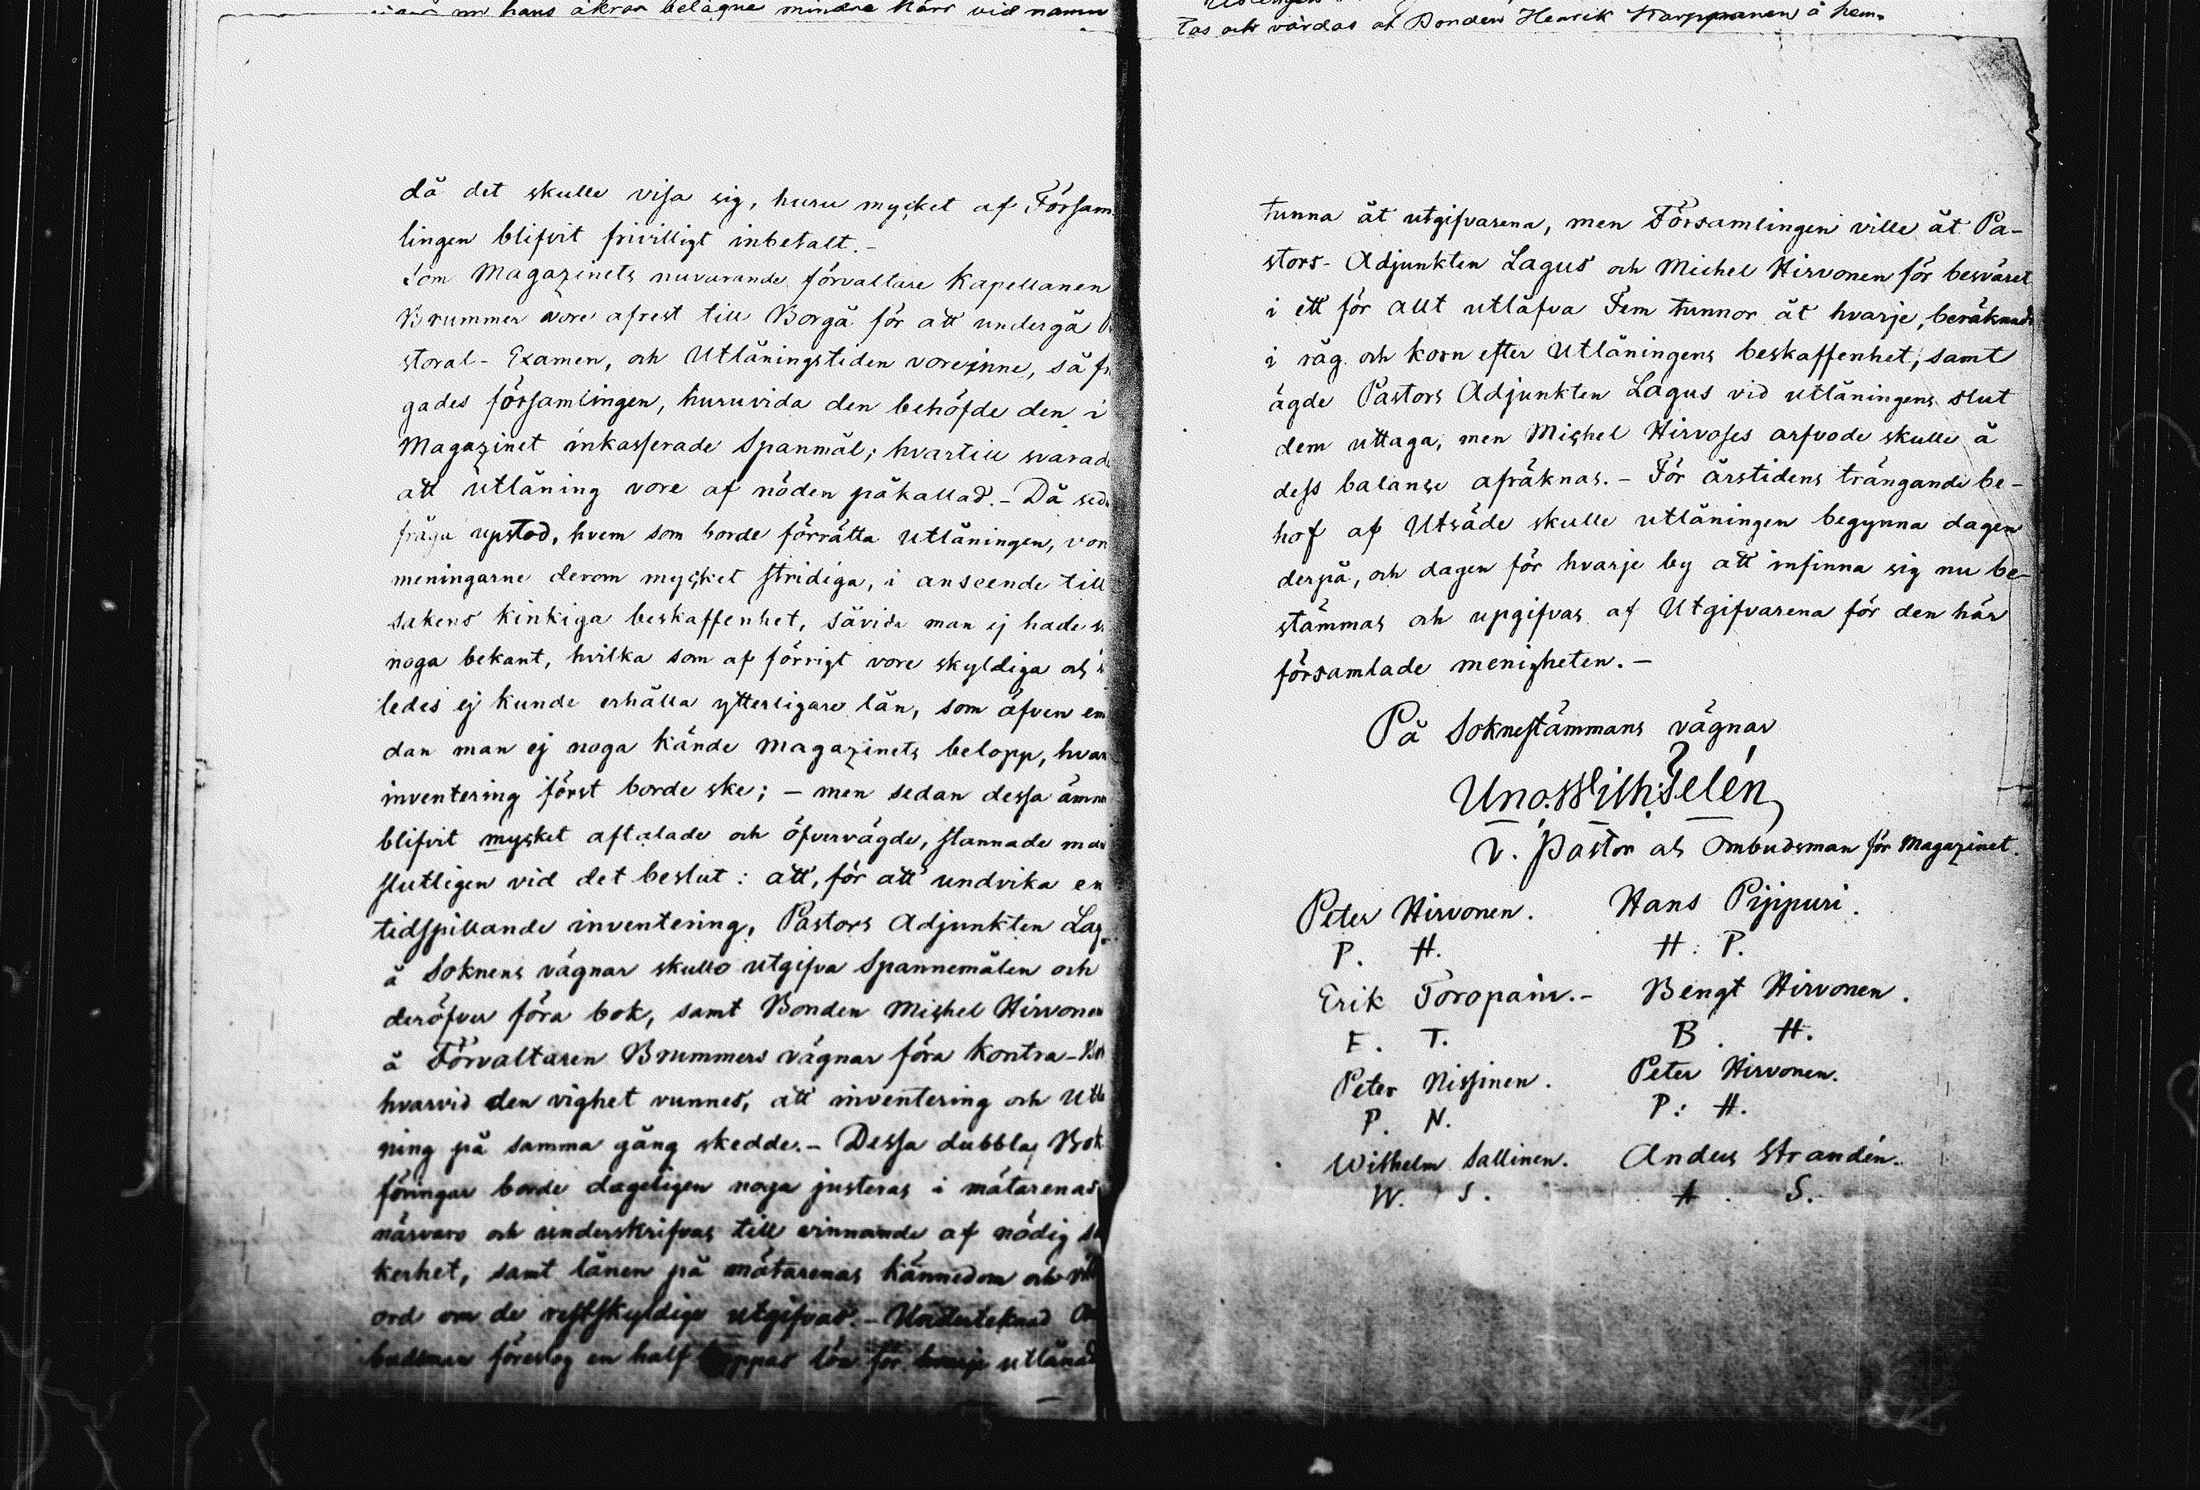 hans åkrar belägne mindre kärr vid namn
då det skulle visa sig, huru mycket af Försam
lingen blifvit frivilligt inbetalt.-
Som Magazinets nuvarande förvaltare Kapellanen
Brummer vore afrest till Borgå för att undergå
storal-Examen, och Utlåningstiden vore inne, så
gades församlingen, huruvida den behöfde den i
Magazinet inkasserade Spanmål; hvartill svarad
att utlåning vore af nöden påkallad.- Då
fråga upstod, hvem som borde förrätta Utlåningen, vor
meningarne derom mycket stridiga, i anseende till
sakens kinkiga beskaffenhet, såvida man ej hade
noga bekant, hvilka som af förrigt vore skyldiga och
ledes ej kunde erhålla ytterligare lån, som äfven em
dan man ej noga kände Magazinets belopp, hvar
inventering först borde ske; - men sedan dessa ämn
blifvit mycket aftalade och öfvervägde, stannade man
slutligen vid det beslut: att, för att undvika en
tidspillande inventering, Pastors Adjunkten Lag
å Soknens vägnar skulle utgifva Spannemålen och
deröfver föra bok, samt Bonden Michel Hirvonen
å Förvaltaren Brummers vägnar föra Kontra-Bok
hvarvid den vighet vunnes, att inventering och Utlå
ning på samma gång skedde.- Dessa dubbla Bok
föringar borde dageligen noga justeras i mätarenas
närvaro och underskrifvas till vinnande af nödig sä
kerhet, samt lånen på mätarenas kännedom och
ord om de restskyldige utgifvas.- Undertecknad Om
budsman föreslog en half kappas lön för hvarje utlånad
tas och vårdas af Bonden Henrik Karppanen å hem-
tunna åt utgifvarena, men Församlingen ville åt Pa-
stors-Adjunkten Lagus och Michel Hirvonen för besväret
i ett för allt utlåfva Fem tunnor åt hvarje, beräknade
i råg och korn efter Utlåningens beskaffenhet, samt
ägde Pastors Adjunkten Lagus vid utlåningens slut
dem uttaga, men Michel Hirvoses arfvode skulle å
dess balance afräknas.- För årstidens trängande be-
hof af Utsäde skulle utlåningen begynna dagen
derpå, och dagen för hvarje by att infinna sig nu be-
stämmas och upgifvas af Utgifvarena för den här
församlade menigheten.-
På Soknestämmans vägnar
Uno. Wilh: Telén
V. Pastor och Ombudsman för Magazinet.
Peter Hirvonen. Hans Pijpuri.
P. H. H: P.
Erik Toropain.- Bengt Hirvonen.
E. T. B. H.
Peter Nissinen. Peter Hirvonen.
P. N. P: H.
Wilhelm Sallinen. Anders Strandén.
W. S. A. S.